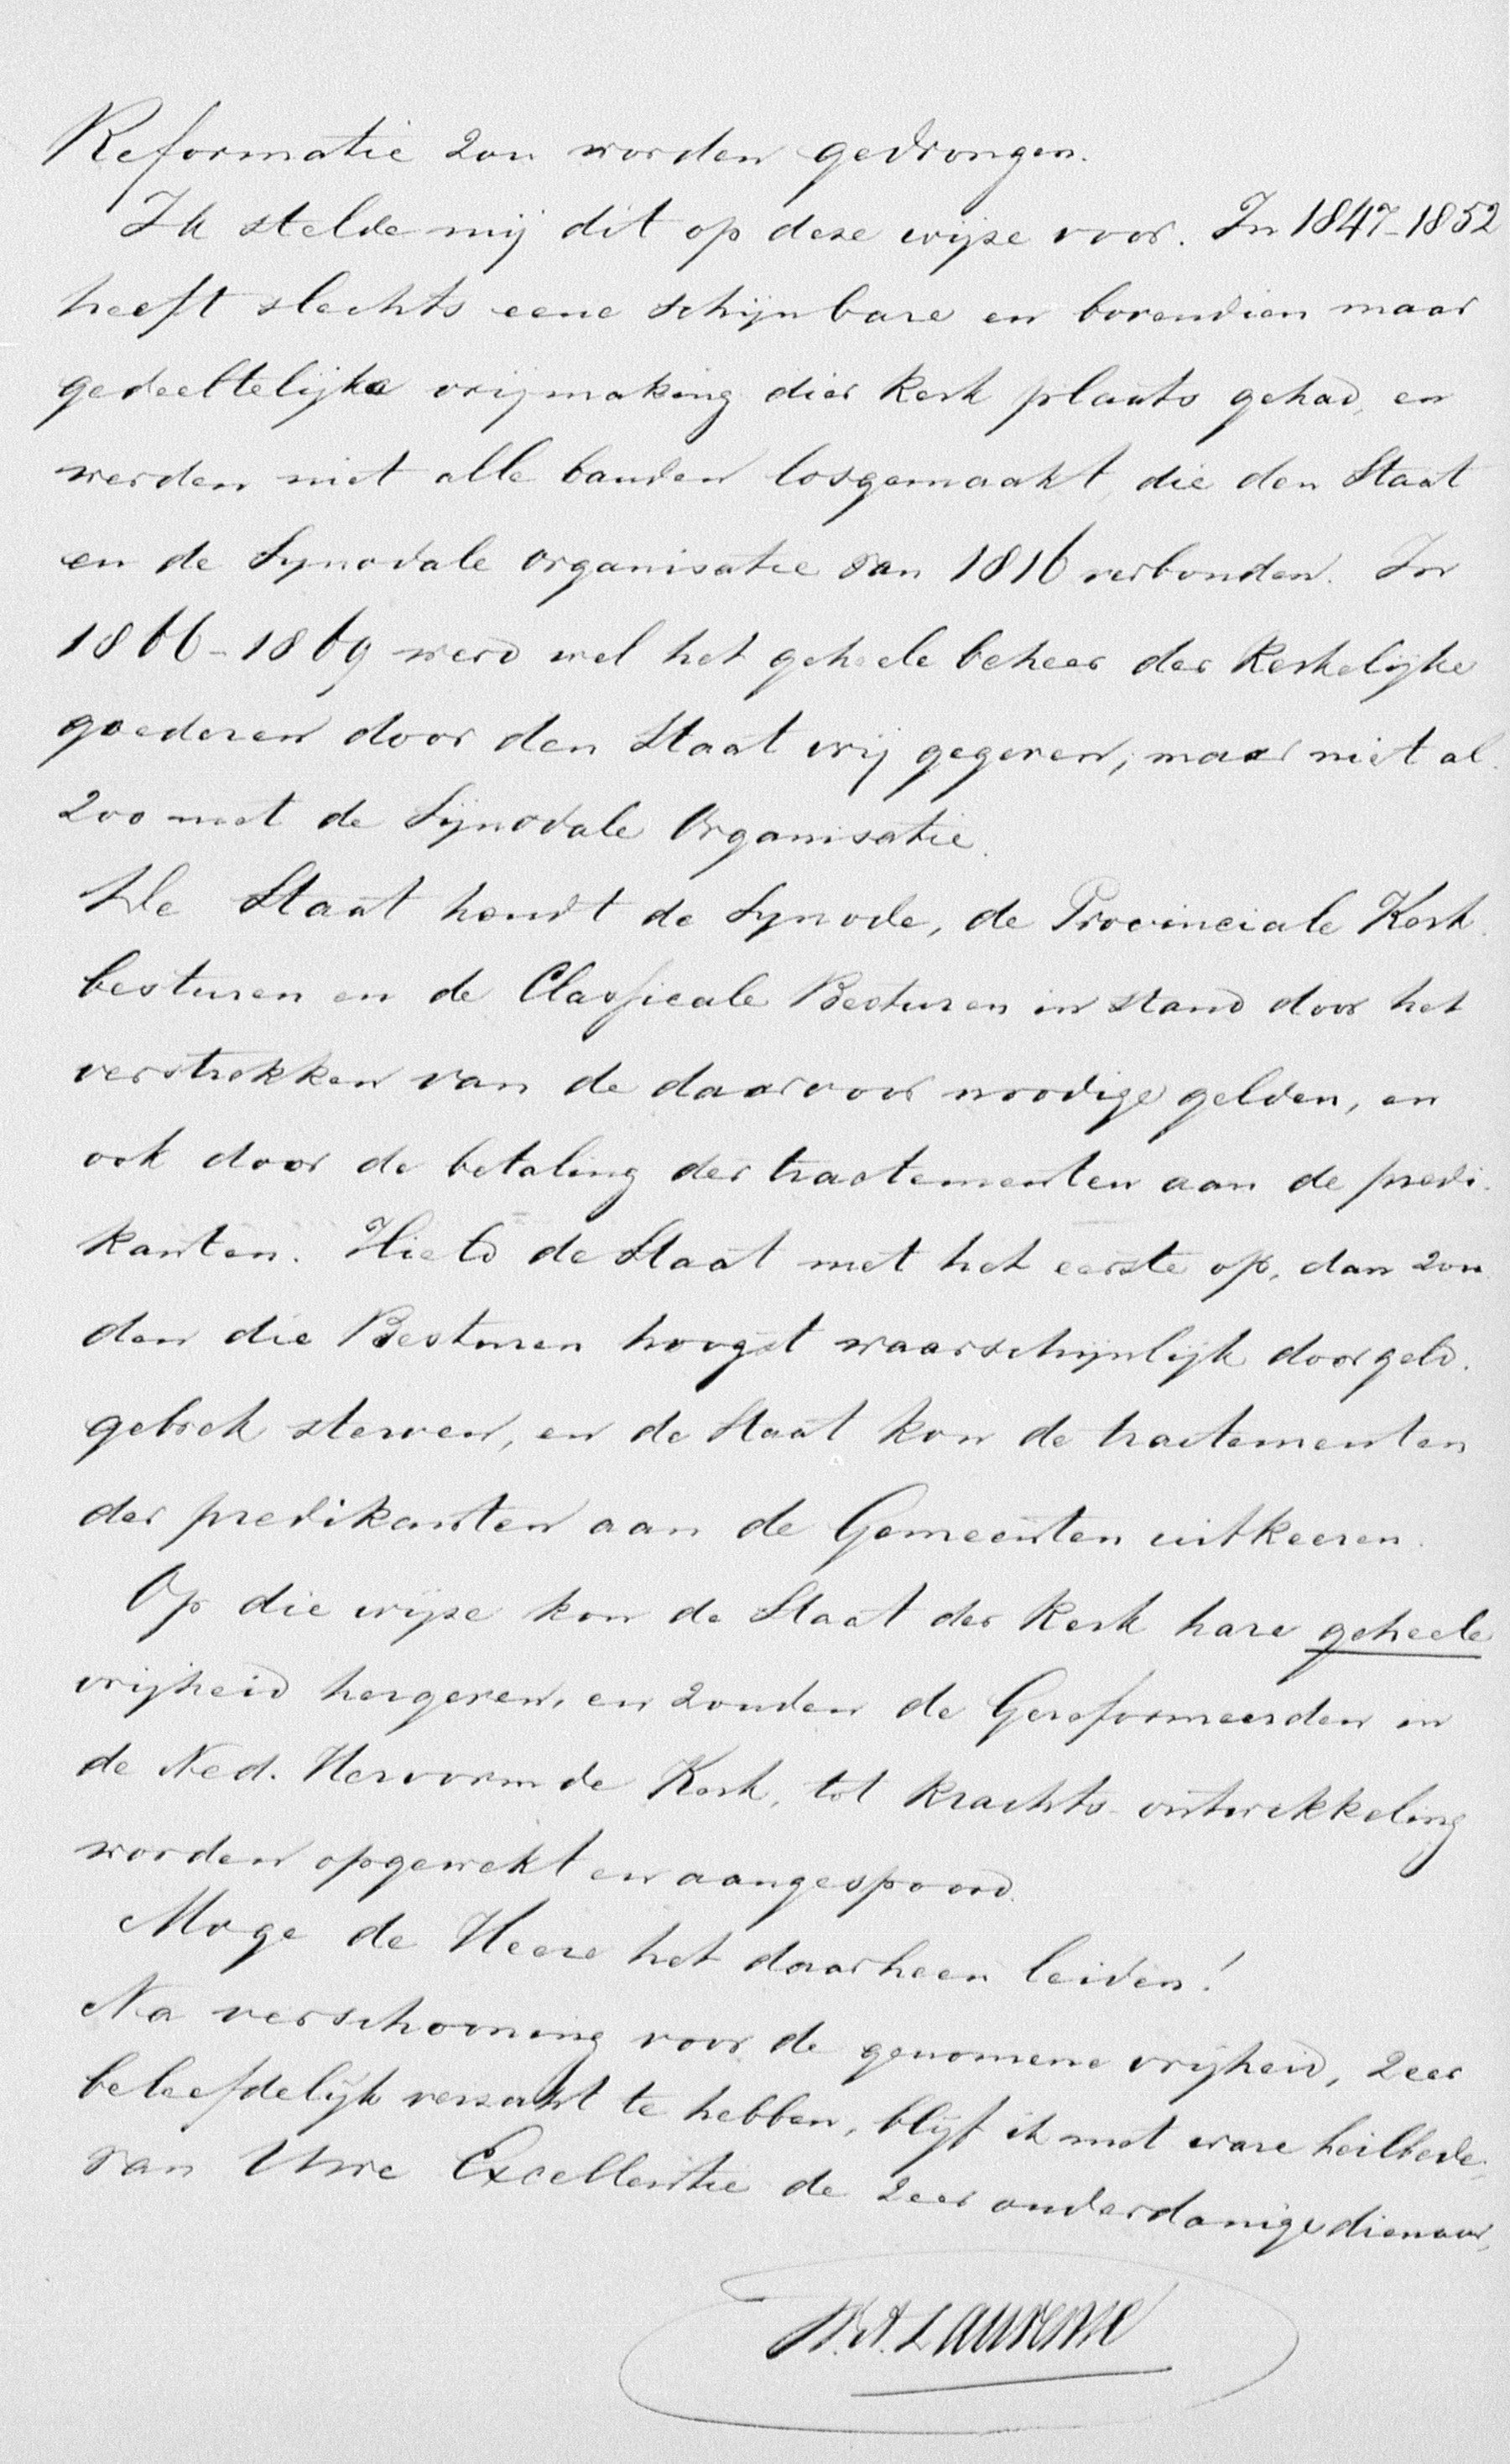 Reformatie zou worden gedrongen.
Ik stelde mij dit op deze wijze voor. In 1847-1852
heeft slechts eene schijnbare en bovendien maar
gedeeltelijke vrijmaking dier Kerk plaats gehad, en
werden niet alle banden losgemaakt, die den Staat
en de Synodale organisatie van 1816 verbonden. In
1866-1869 werd wel het geheele beheer der Kerkelijke
goederen door den Staat vrij gegeven; maar niet al.
zoo met de Synodale Organisatie.
De Staat houdt de Synode, de Provinciale Kerk.
besturen en de Classicale Besturen in stand door het
verstrekken van de daarvoor noodige gelden, en
ook door de betaling der tractementen aan de predi.
kanten. Hield de Staat met het eerste op, dan zou
den die Besturen hoogst waarschijnlijk door geld.
gebrek sterven, en de Staat kon de tractementen
der predikanten aan de Gemeenten uitkeeren.
Op die wijze kon de Staat der Kerk hare geheele
vrijheid hergeven, en zouden de Gereformeerden in
de Ned. Hervormde Kerk, tot krachts-ontwikkeling
worden opgewekt en aangespoord.
Moge de Heere het daarheen leiden!
Na verschooning voor de genomene vrijheid, zeer
beleefdelijk verzocht te hebben, blijf ik met ware heilbede,
van Uwe Excellentie de zeer onderdanige dienaar,